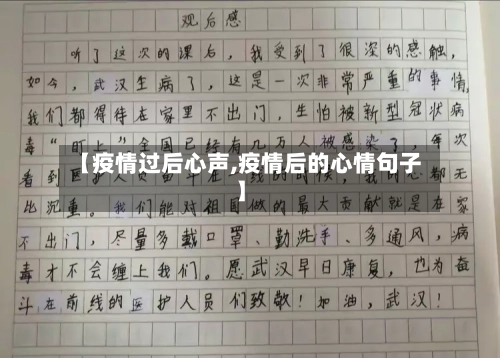 观后感
听了这次的课后，我受到了很深的感触，
如今，武汉生病了，这是一次非常严重的事情，
我们都得待在家里不出门，生怕被新型冠状病
毒“盯上”全国已经有几万人被感染了，每次
【疫情过后心声,疫情后的心情句子
】
看到医护人员
比沉重。我们能对祖国做的最大贡献就是在家
不出门，尽量多戴口罩、勤洗手、多通风，病
毒才不会缠上我们。愿武汉早日康复，也为奋
斗在前线的医护人员们致敬！加油，武汉！